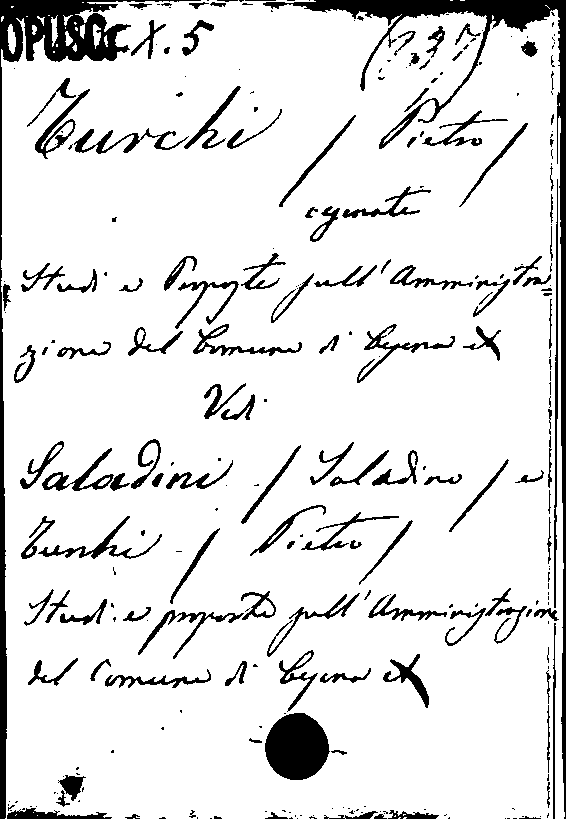 OPUSC. CX.5 (237)
Turchi / Pietro /
cesenate
Studi e Proposte sull'Amministra=
zione del Comune di Cesena ex
Vedi
Saladini / Saladino / e
Turchi / Pietro /
Studi e proposte sull'Amministrazione
del Comune di Cesena ex